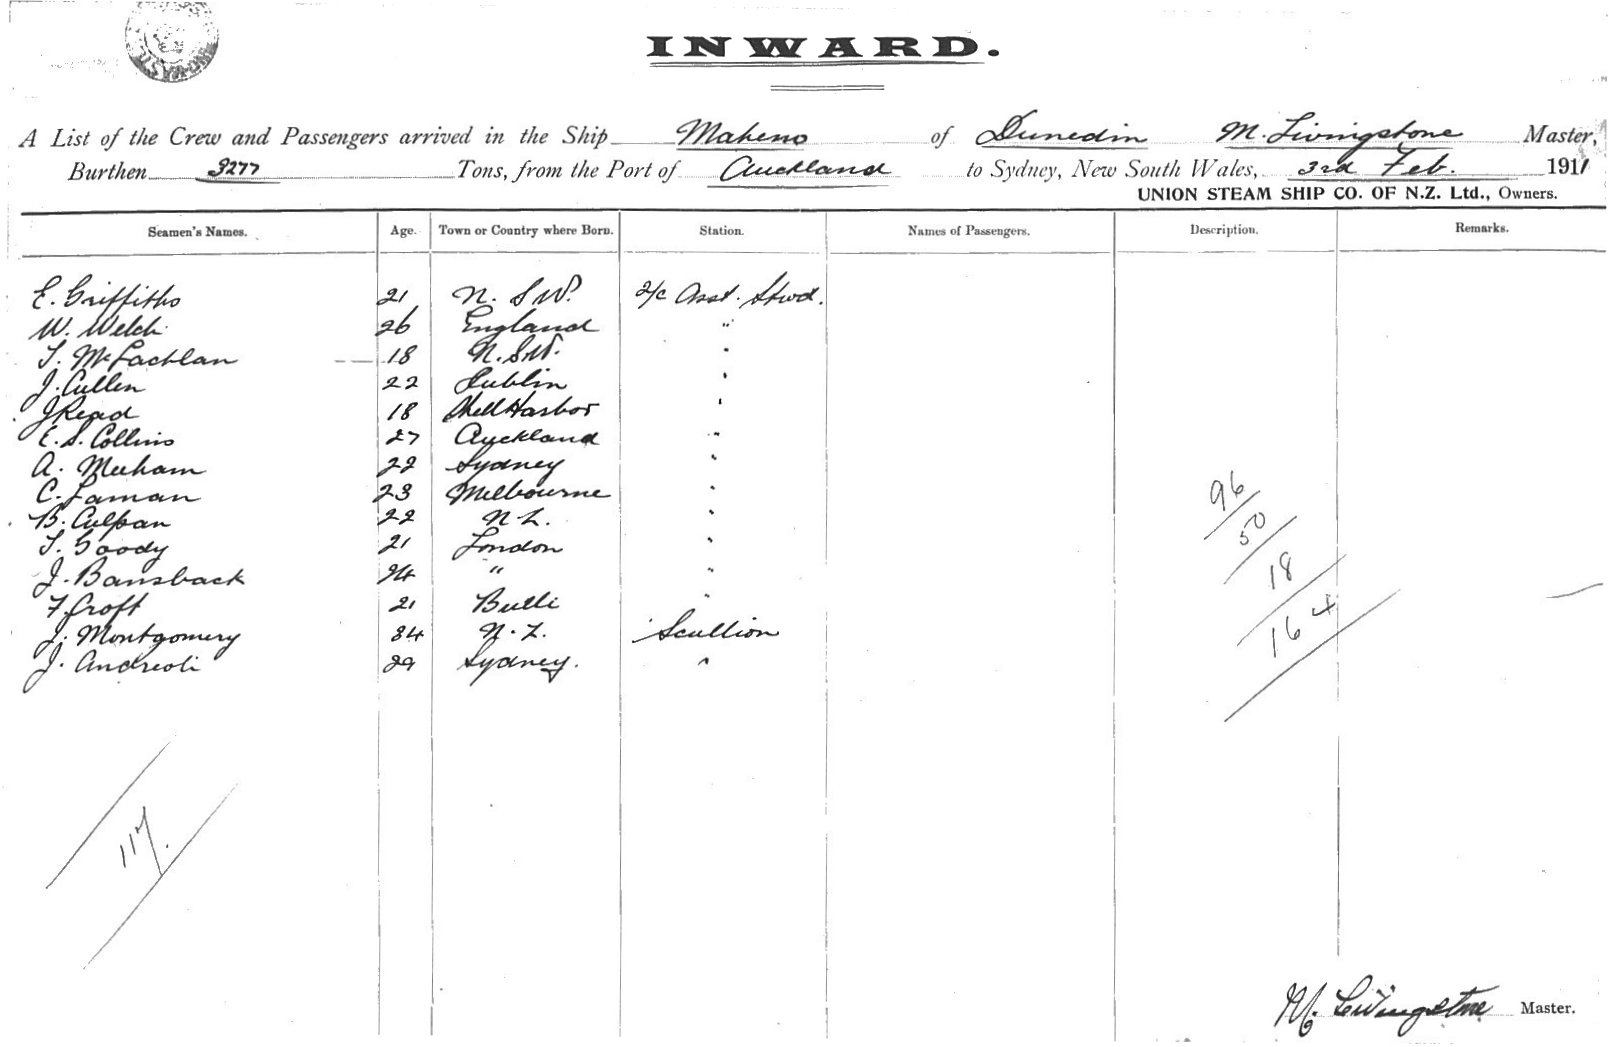 INWARD.
A List of the Crew and Passengers arrived in the Ship Maheno of Dunedin M. Livingstone Master,
Burthen 3277 Tons, from the Port of Auckland to Sydney, New South Wales, 3rd Feb. 1911
UNION STEAM SHIP CO. OF N.Z. Ltd., Owners.
Seamen's Names. Age. Town or Country where Born. Station. Names of Passengers. Description. Remarks.
E. Griffiths 21 N. S.W. 2/c Asst. Stwd.
W. Welch 26 England "
T. McLachlan 18 N.S.W. "
J. Cullen 22 Dublin "
J Read 18 Shell Harbor "
E. S. Collins 27 Auckland "
A. Meeham 22 Sydney "
C. Laman 23 Melbourne "
B. Culpan 22 N.Z. "
T. Goody 21 London "
J. Bansback 24 " "
F. Croft 21 Bulli "
J. Montgomery 34 N.Z. Scullion
J. Andreoli 29 Sydney. "
96
50
18
164
117.
M. Livingstone Master.